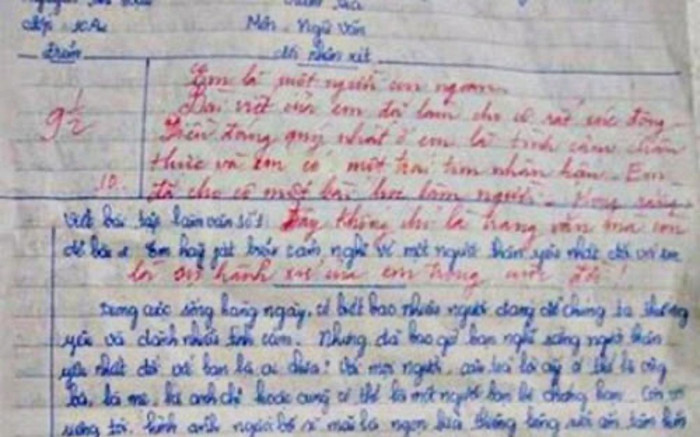 Lớp 10A
Môn: Ngữ Văn
Điểm
Lời nhận xét
9 1/2
10
Em là một người con ngoan.
Bài viết của em đã làm cho cô rất xúc động.
Điều đáng quý nhất ở em là tình cảm chân
thực và em có một trái tim nhân hậu. Em
đã cho cô một bài học làm người. Mong rằng
đây không chỉ là trang văn mà còn
là sự hành xử của em trong cuộc đời!
Viết bài tập làm văn số 1:
Đề bài: Em hãy phát biểu cảm nghĩ về một người thân yêu nhất đối với em
Trong cuộc sống hàng ngày, có biết bao nhiêu người đáng để chúng ta thương
yêu và dành nhiều tình cảm. Nhưng đã bao giờ bạn nghĩ rằng người thân
yêu nhất đối với bạn là ai chưa? Với mọi người, câu trả lời ấy có thể là ông
bà, là mẹ, là anh chị hoặc cũng có thể là một người bạn bè chẳng hạn. Còn
riêng tôi, hình ảnh người bố sẽ mãi là ngọn lửa thiêng liêng sưởi ấm tâm hồn